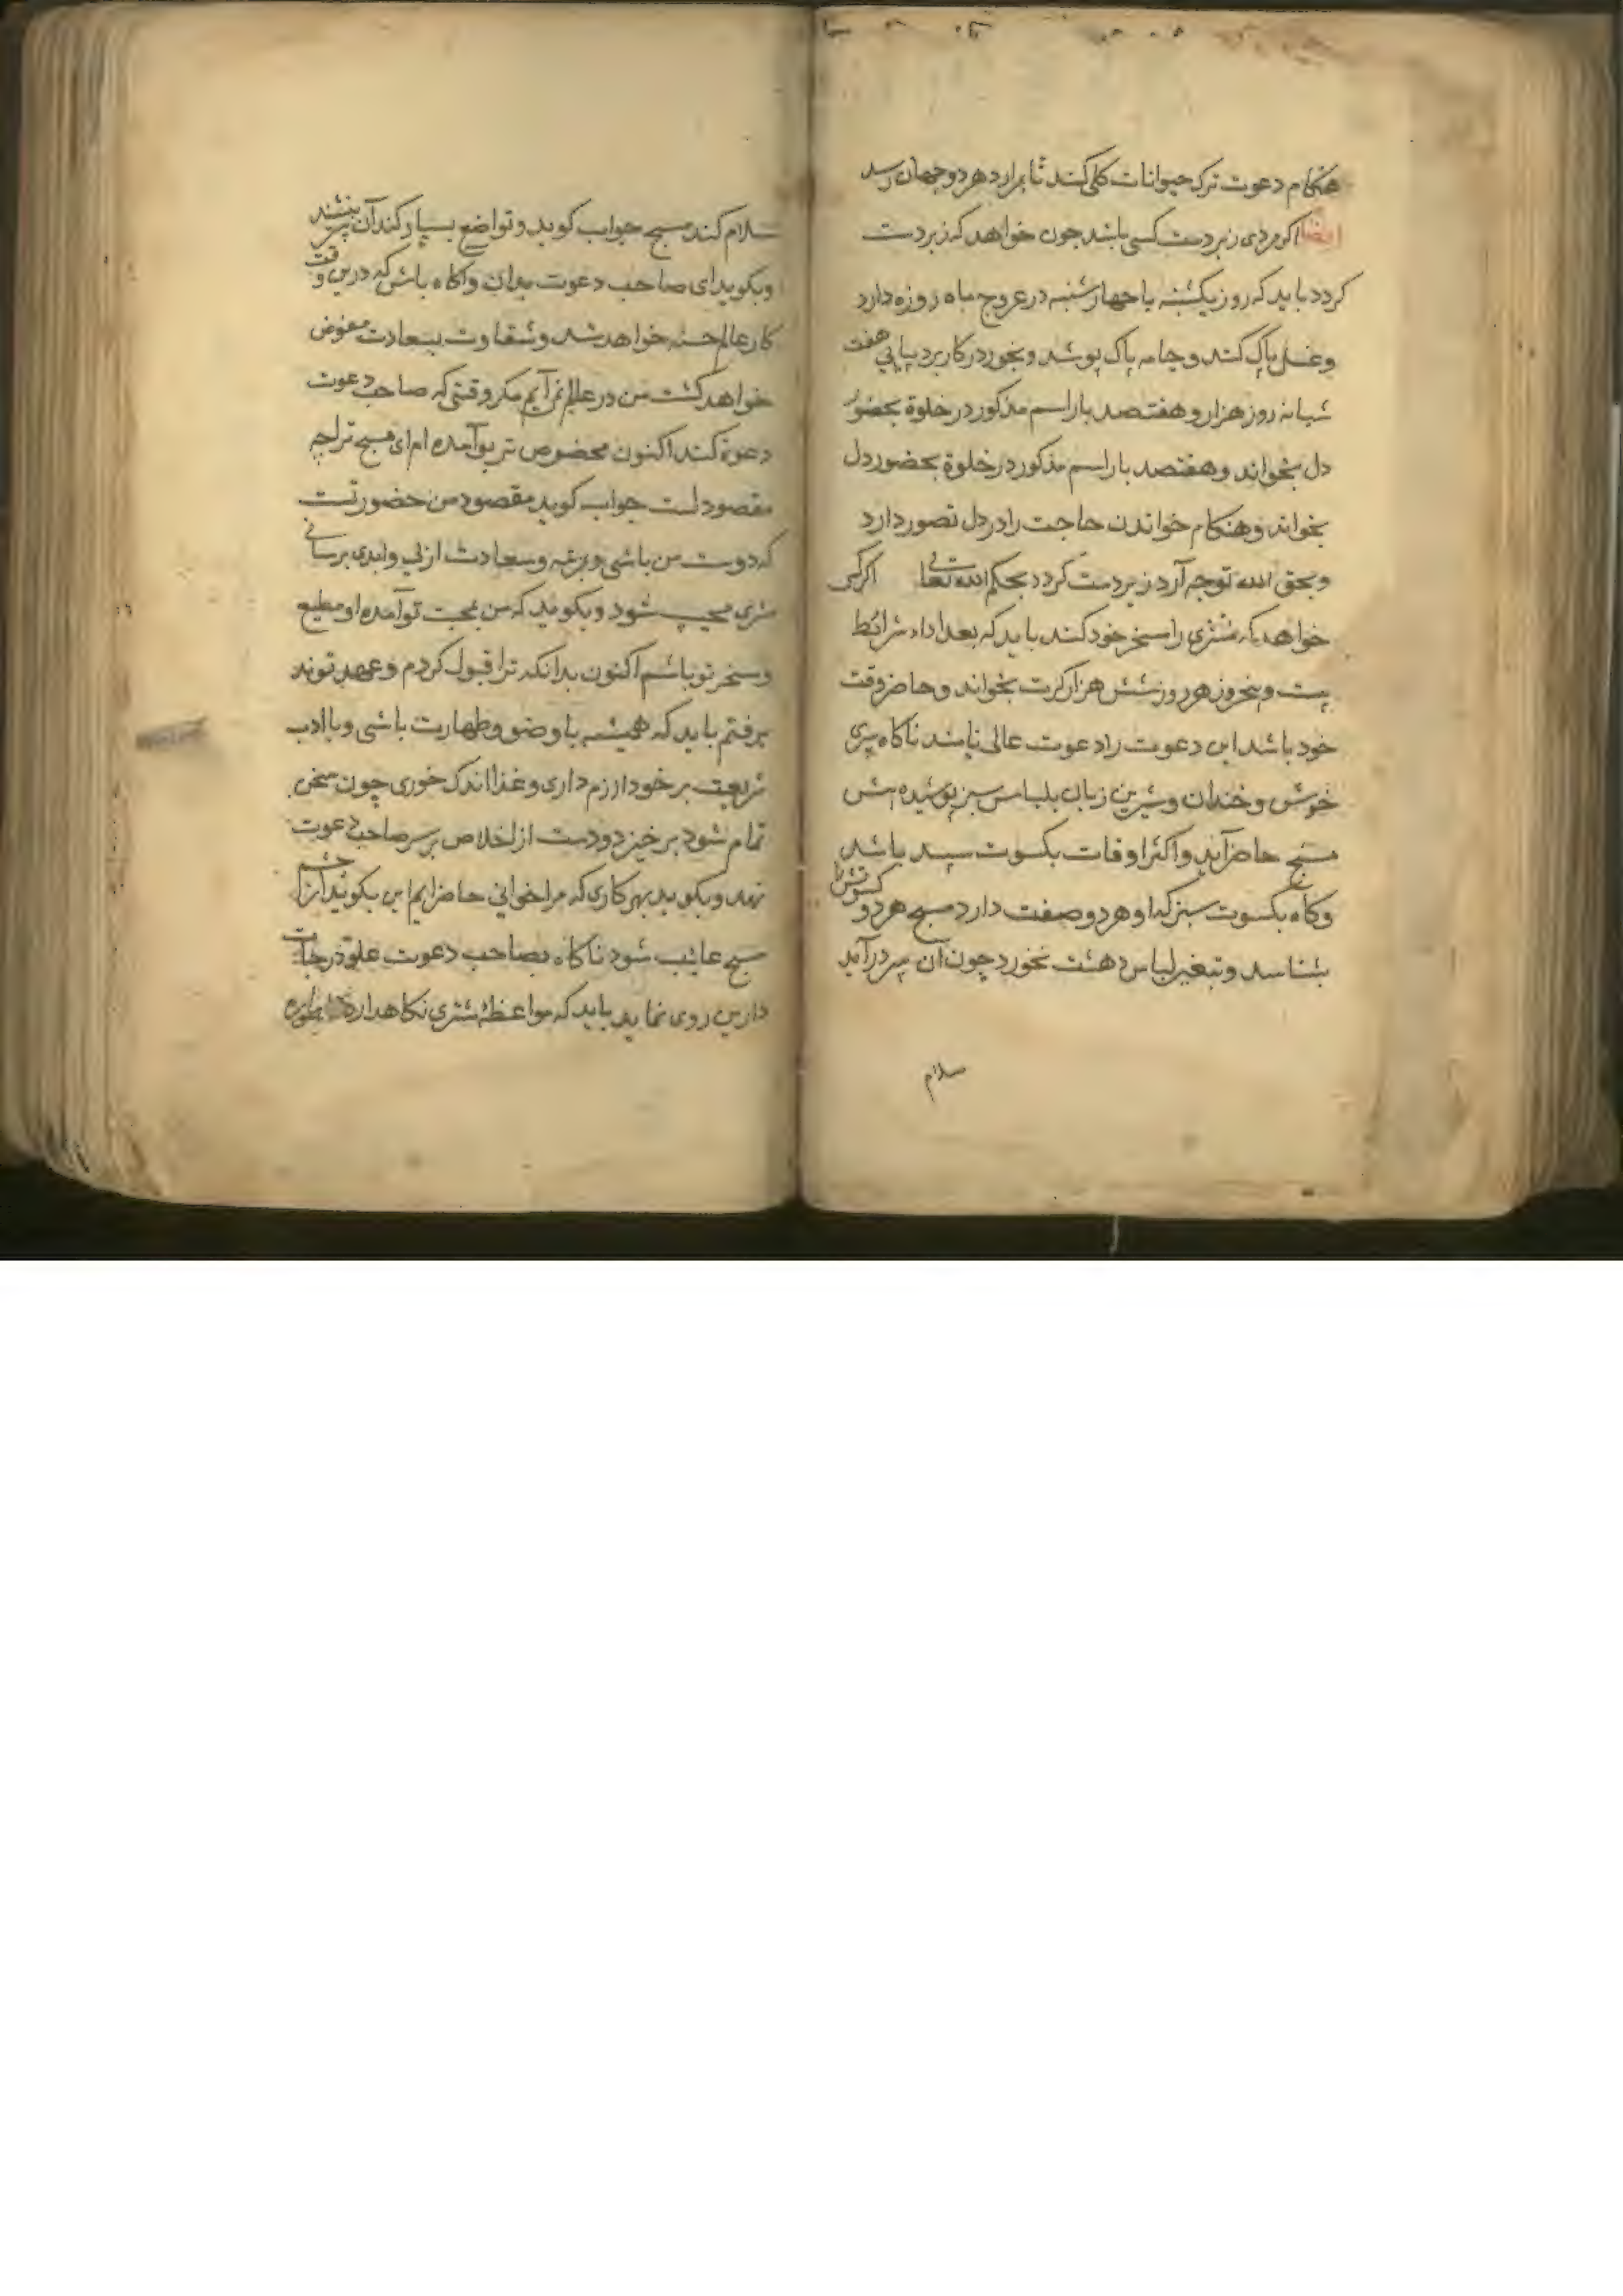 هنکام دعوت ترک حیوانات کلی کند تا بمراد هر دو جهان رسد
ایضا اکر مردی زبردست کسی باشد چون خواهد که زبردست
کردد باید که روز یکشنبه یا چهارشنبه در عروج ماه روزه دارد
وغسل پاک کند و جامه پاک پوشد و بخور در کار برد پیاپی هفت
شبانه روز هزار و هفتصد بار اسم مذکور در خلوة بحضور
دل بخواند و هفتصد بار اسم مذکور در خلوة بحضور دل
بخواند و هنکام خواندن حاجت را در دل تصور دارد
و بحق الله توجه آرد زبردست کردد بحکم الله تعالی اکر کسی
خواهد که مشتری را مسخر خود کند باید که بعد اداء شرائط
بیست و پنج روز هر روز شش هزار کرت بخواند و حاضر وقت
خود باشد این دعوت را دعوت عالی نامند ناکاه پیری
خوش و خندان و شیرین زبان بلباس سبز پوشیده پیش
مسبح حاضر آید و اکثر اوقات بکسوت سپید باشد
و کاه بکسوت سبز که او هر دو صفت دارد مسبح هر دو کسوتش را
بشناسد و بتغیر لباس دهشت نخورد چون آن پیر درآید
سلام
سلام کند مسبح جواب کوید و تواضع بسیار کند آن پیر بنشیند
و بکوید ای صاحب دعوت بدان و آکاه باش که درین وقت
کار عالم حسنه خواهد شد و شقاوت بسعادت معوض
خواهد کشت من در عالم نمی آیم مکر وقتی که صاحب دعوت
دعوة کند اکنون مخصوص تر بتو آمده ام ای مسبح ترا چه
مقصود است جواب کوید مقصود من حضور تست
که دوست من باشی و برتبه و سعادت ازلی و ابدی برسانی
مشتری مجیب شود و بکوید که من بمحبت تو آمده او مطیع
و مسخر تو باشم اکنون بدانکه ترا قبول کردم و عهد تو پذ
یرفتم باید که همیشه با وضو و طهارت باشی و با ادب
شریعت بر خود لازم داری و غذا اندک خوری چون سخن
تمام شود برخیزد و دست از اخلاص بر سر صاحب دعوت
نهد و بکوید بهر کاری که مرا خوانی حاضر ایم این بکوید از چشم
مسبح غایب شود ناکاه بصاحب دعوت علو درجات
دارین روی نماید باید که مواعظهٔ مشتری نکاهدارد